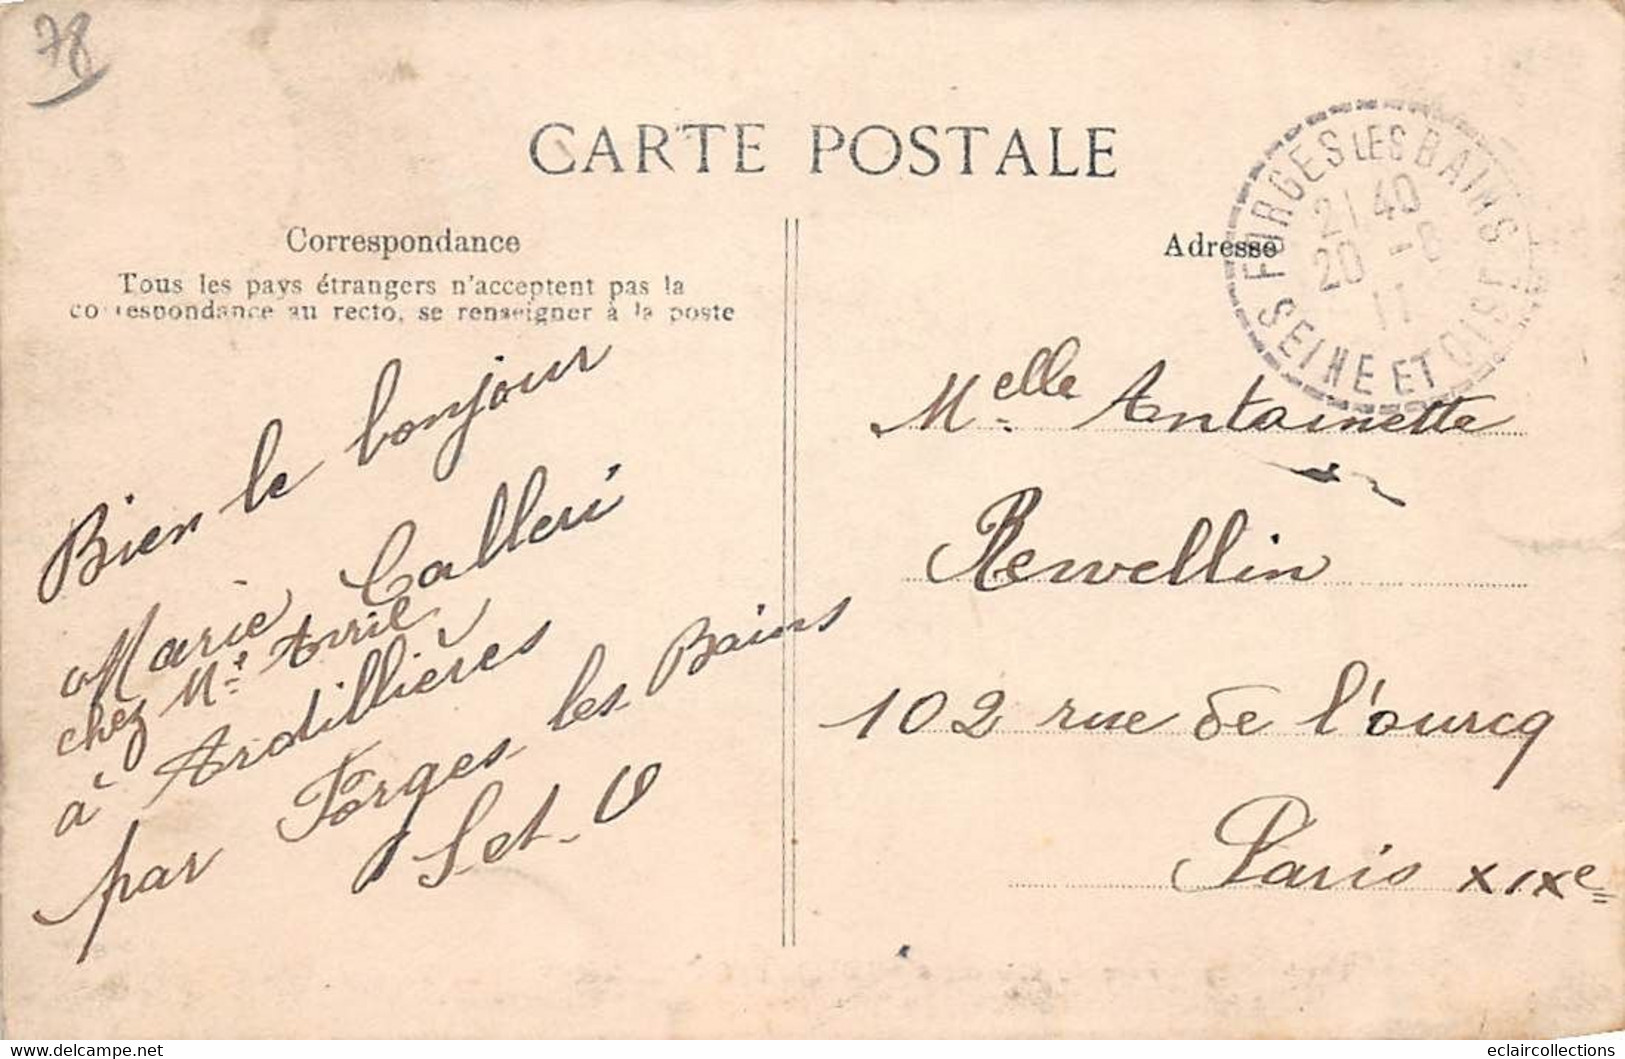 78
CARTE POSTALE
Correspondance
Tous les pays étrangers n'acceptent pas la
correspondance au recto, se renseigner à la poste
Bien le bonjour
Marie Calleri
chez Mr Avril
à Ardillières
par Forges les Bains
S et O
Adresse
FORGES LES BAINS
21 40
20 -8
11
SEINE ET OISE
Melle Antoinette
Revellin
102 rue de l'ourcq
Paris XIXe
www.delcampe.net
eclaircollections